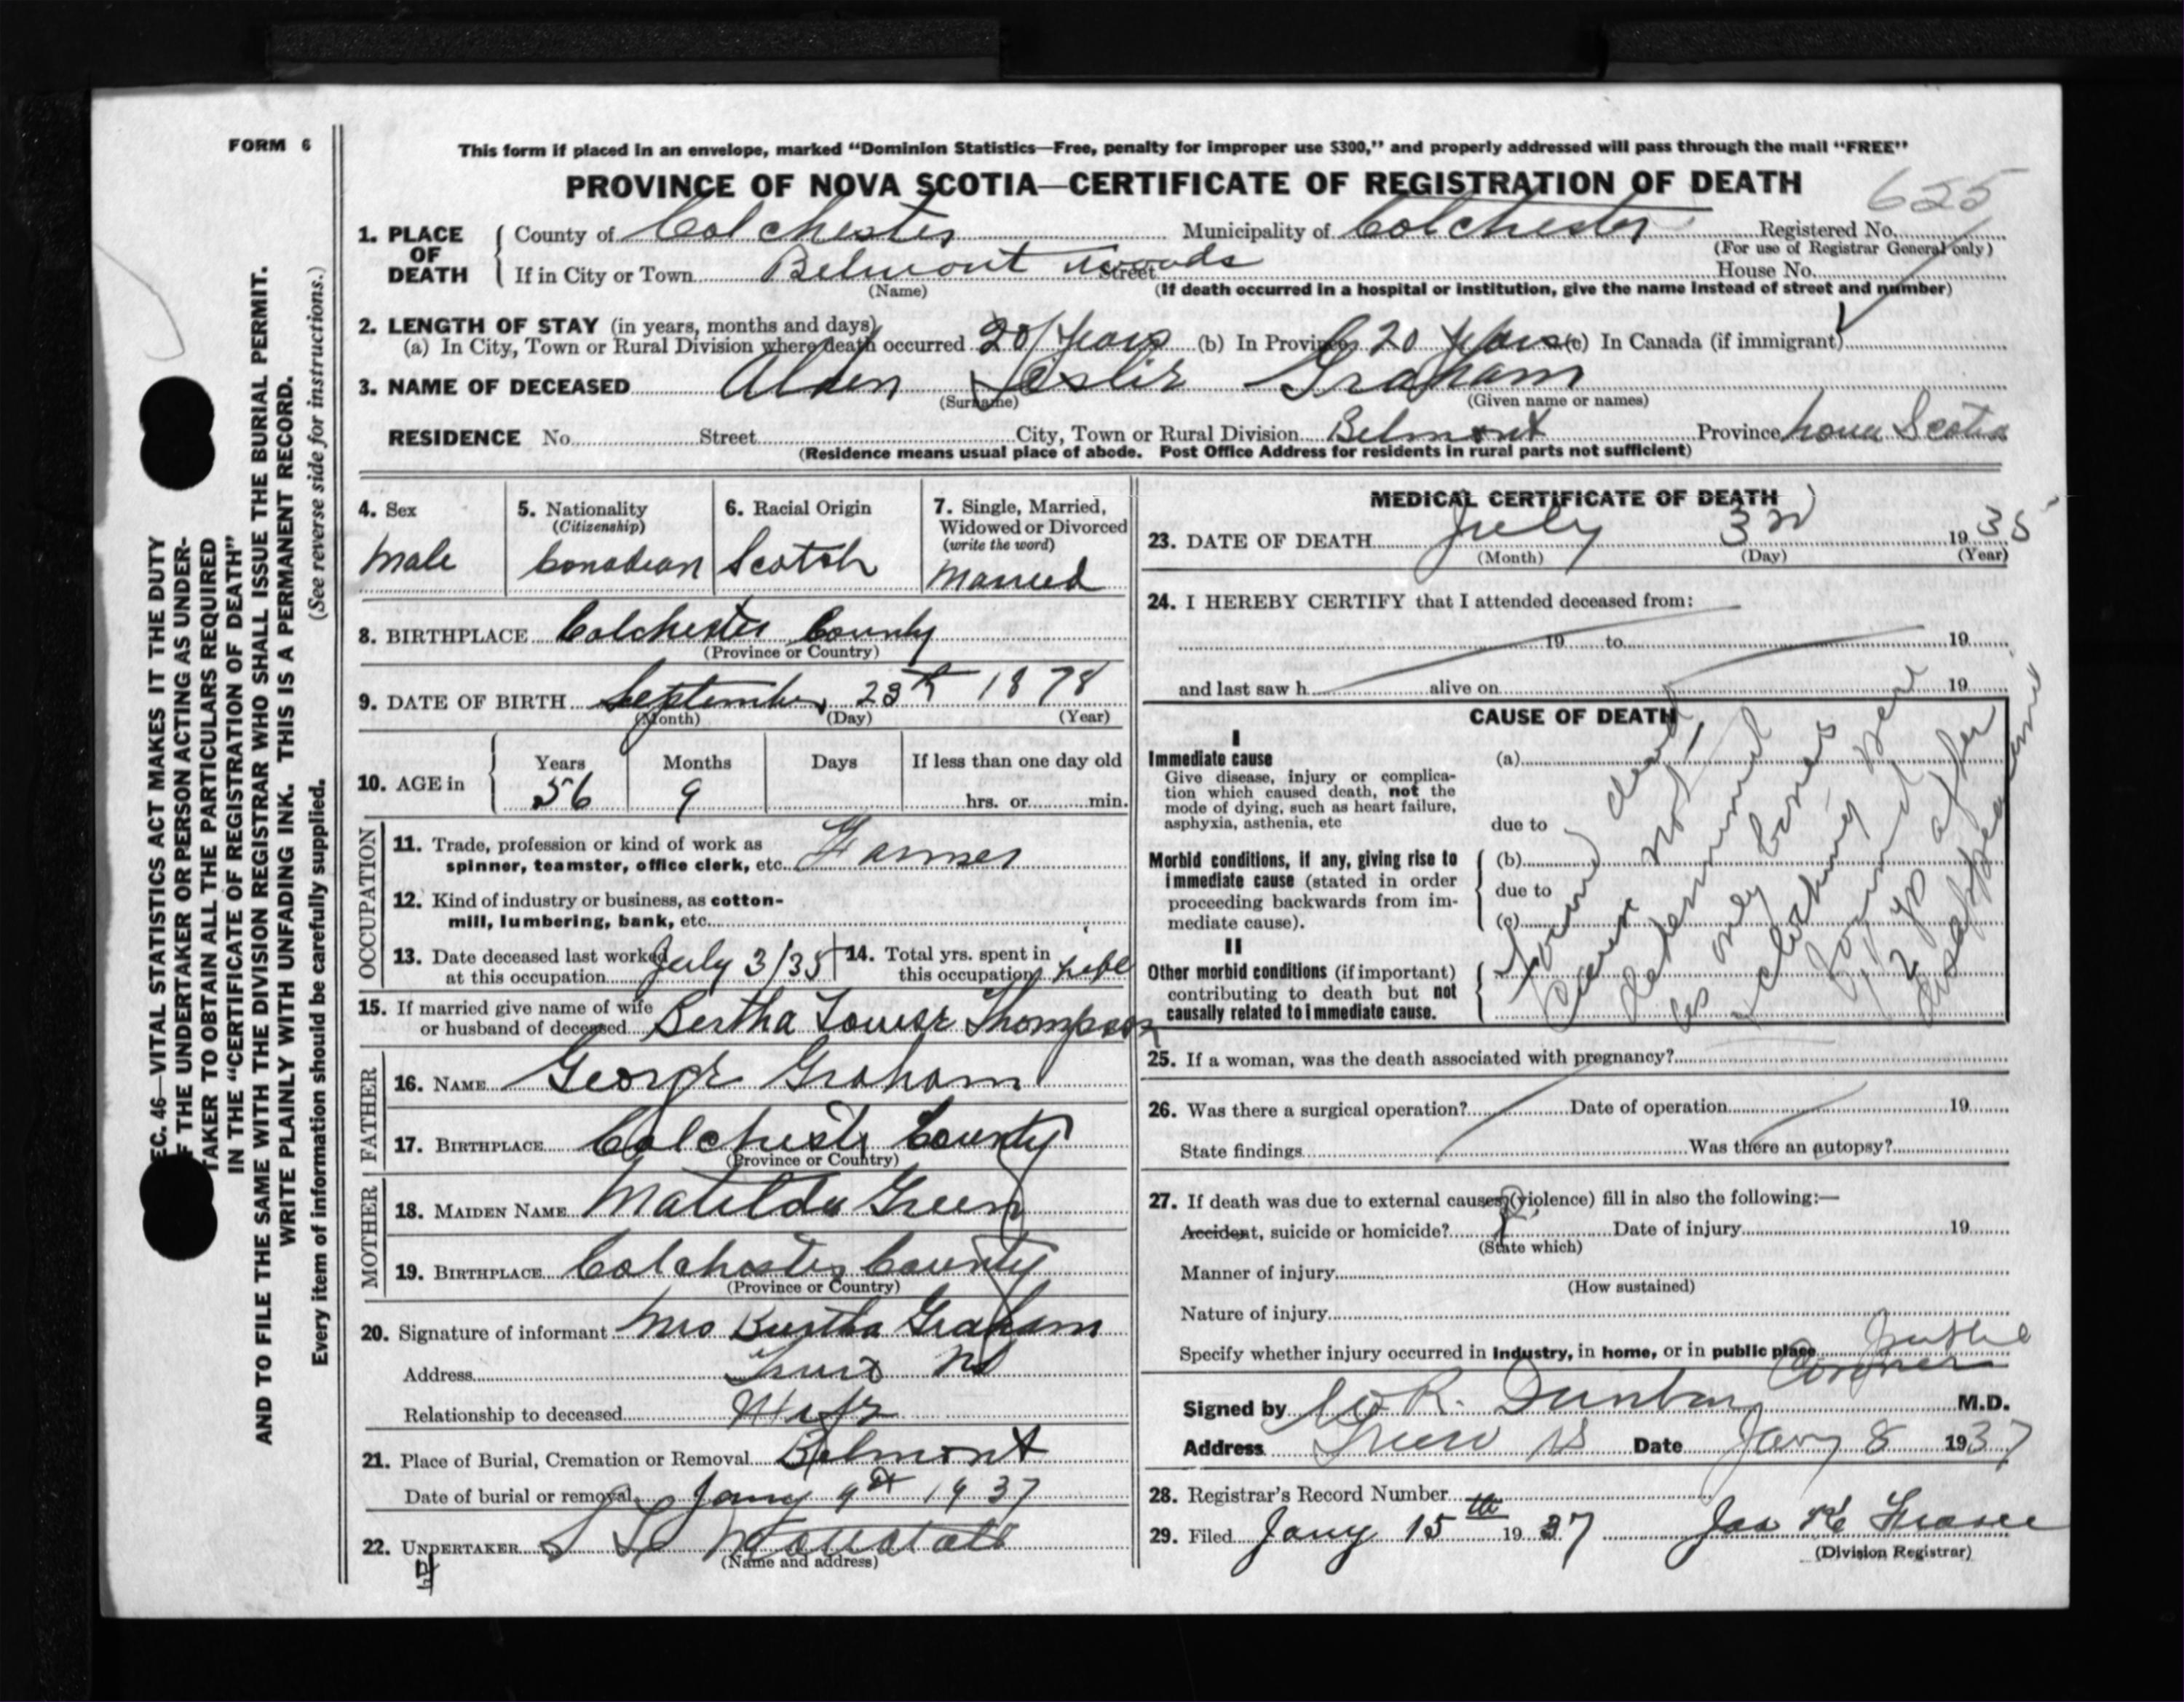 FORM 6
This form if placed in an envelope, marked "Dominion Statistics—Free, penalty for improper use $300," and properly addressed will pass through the mail "FREE"
PROVINCE OF NOVA SCOTIA—CERTIFICATE OF REGISTRATION OF DEATH
625
1. PLACE OF DEATH County of Colchester Municipality of Colchester Registered No.
(For use of Registrar General only)
If in City or Town Belmont woods Street House No.
(Name) (If death occurred in a hospital or institution, give the name instead of street and number)
2. LENGTH OF STAY (in years, months and days)
(a) In City, Town or Rural Division where death occurred 20 Years (b) In Province 20 Years (c) In Canada (if immigrant)
3. NAME OF DECEASED Alden Leslie Graham
(Surname) (Given name or names)
RESIDENCE No. Street City, Town or Rural Division Belmont Province Nova Scotia
(Residence means usual place of abode. Post Office Address for residents in rural parts not sufficient)
4. Sex
Male
5. Nationality
(Citizenship)
Canadian
6. Racial Origin
Scotch
7. Single, Married,
Widowed or Divorced
(write the word)
Married
8. BIRTHPLACE Colchester County
(Province or Country)
9. DATE OF BIRTH September 23th 1878
(Month) (Day) (Year)
10. AGE in Years Months Days If less than one day old
56 9 hrs. or min.
OCCUPATION
11. Trade, profession or kind of work as
spinner, teamster, office clerk, etc. Farmer
12. Kind of industry or business, as cotton-
mill, lumbering, bank, etc.
13. Date deceased last worked
at this occupation July 3/35
14. Total yrs. spent in
this occupation life
15. If married give name of wife
or husband of deceased Bertha Louise Thompson
FATHER
16. NAME George Graham
17. BIRTHPLACE Colchester County
(Province or Country)
MOTHER
18. MAIDEN NAME Matilda Green
19. BIRTHPLACE Colchester County
(Province or Country)
20. Signature of informant Mrs Bertha Graham
Address Truro NS
Relationship to deceased Wife
21. Place of Burial, Cremation or Removal Belmont
Date of burial or removal Jany 9th 1937
22. UNDERTAKER
(Name and address)
MEDICAL CERTIFICATE OF DEATH
23. DATE OF DEATH July 3rd 1935
(Month) (Day) (Year)
24. I HEREBY CERTIFY that I attended deceased from:
19 to 19
and last saw h alive on 19
CAUSE OF DEATH
I
Immediate cause
Give disease, injury or complica-
tion which caused death, not the
mode of dying, such as heart failure,
asphyxia, asthenia, etc
(a)
due to
Morbid conditions, if any, giving rise to
immediate cause (stated in order
proceeding backwards from im-
mediate cause).
(b)
due to
(c)
II
Other morbid conditions (if important)
contributing to death but not
causally related to immediate cause.
Found dead
Cause not
determined
as only bones
& clothing were
found
1 1/2 yr after
disappearance
25. If a woman, was the death associated with pregnancy?
26. Was there a surgical operation? Date of operation 19
State findings Was there an autopsy?
27. If death was due to external causes (violence) fill in also the following:—
Accident, suicide or homicide? ? Date of injury 19
(State which)
Manner of injury
(How sustained)
Nature of injury
Specify whether injury occurred in Industry, in home, or in public place
Coroner
Signed by W R. Dunbar M.D.
Address Truro NS Date Jany 8 1937
28. Registrar's Record Number
29. Filed Jany 15th 1937 Jas
(Division Registrar)
EC. 46—VITAL STATISTICS ACT MAKES IT THE DUTY
F THE UNDERTAKER OR PERSON ACTING AS UNDER-
TAKER TO OBTAIN ALL THE PARTICULARS REQUIRED
IN THE "CERTIFICATE OF REGISTRATION OF DEATH"
AND TO FILE THE SAME WITH THE DIVISION REGISTRAR WHO SHALL ISSUE THE BURIAL PERMIT.
WRITE PLAINLY WITH UNFADING INK. THIS IS A PERMANENT RECORD.
Every item of information should be carefully supplied. (See reverse side for instructions.)